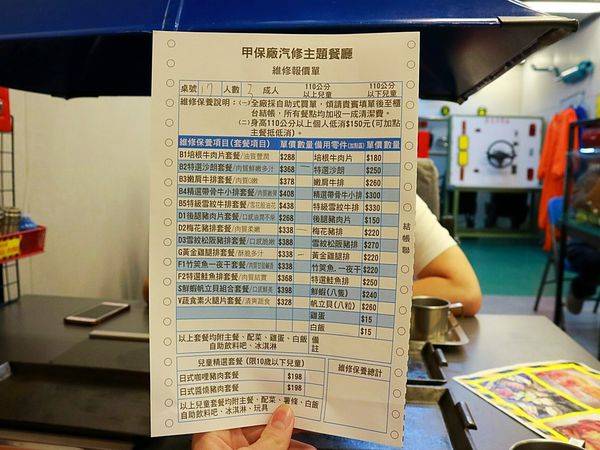 甲保廠汽修主題餐廳
維修報價單
桌號 17 人數 2 成人 110公分以上兒童 110公分以下兒童
維修保養說明：(一)全廠採自助式買單，煩請貴賓填單後至櫃
台結帳，所有餐點均加收一成清潔費。
(二)身高110公分以上個人低消$150元(可加點
主餐抵低消)。
維修保養項目(套餐項目) 單價 數量 備用零件(加點區) 單價 數量
B1培根牛肉片套餐/油質豐潤 $288 培根牛肉片 $180
B2特選沙朗套餐/肉質鮮嫩多汁 $368 一 特選沙朗 $250
B3嫩肩牛排套餐/肉質Q嫩 $378 嫩肩牛排 $260
B4精選帶骨牛小排套餐/肉質軟嫩 $408 精選帶骨牛小排 $300
B5特級雪紋牛排套餐/雪花般油花 $438 特級雪紋牛排 $330
D1後腿豬肉片套餐/口感油潤不柴 $268 後腿豬肉片 $150
D2梅花豬排套餐/肉質柔嫩 $338 梅花豬排 $220
D3雪紋松阪豬排套餐/口感脆嫩 $388 雪紋松阪豬排 $270
G黃金雞腿排套餐/酥脆多汁 $338 一 黃金雞腿排 $220
F1竹筴魚一夜干套餐 $338 竹筴魚.一夜干 $220
F2特選鮭魚排套餐/肉質結實 $368 特選鮭魚排 $250
S鮮蝦帆立貝組合套餐/口感鮮美 $398 鮮蝦(八隻) $240
V蔬食素火腿片套餐/清爽蔬食 $328 帆立貝(八粒) $260
雞蛋 $15
白飯 $15
以上套餐均附主餐、配菜、雞蛋、白飯
自助飲料吧、冰淇淋
備註
兒童精選套餐 (限10歲以下兒童)
維修保養總計
日式咖哩豬肉套餐 $198
日式醬燒豬肉套餐 $198
以上兒童套餐均附主餐、配菜、薯條、白飯
自助飲料吧、冰淇淋、玩具
結帳聯